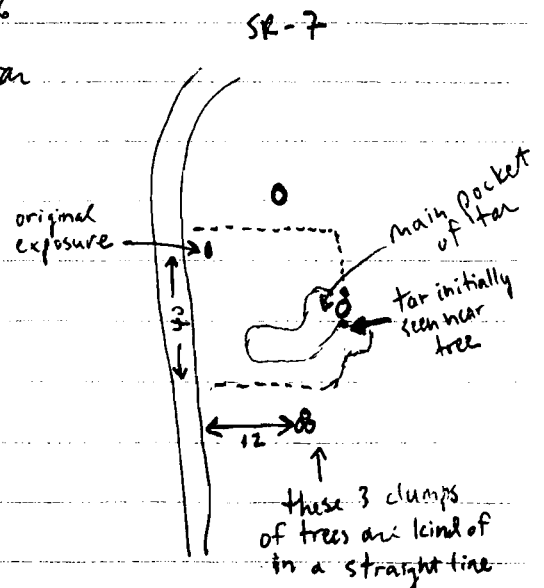 SR-7
original
exposure
main pocket
of tar
tar initially
seen near
tree
12
these 3 clumps
of trees are kind of
in a straight line